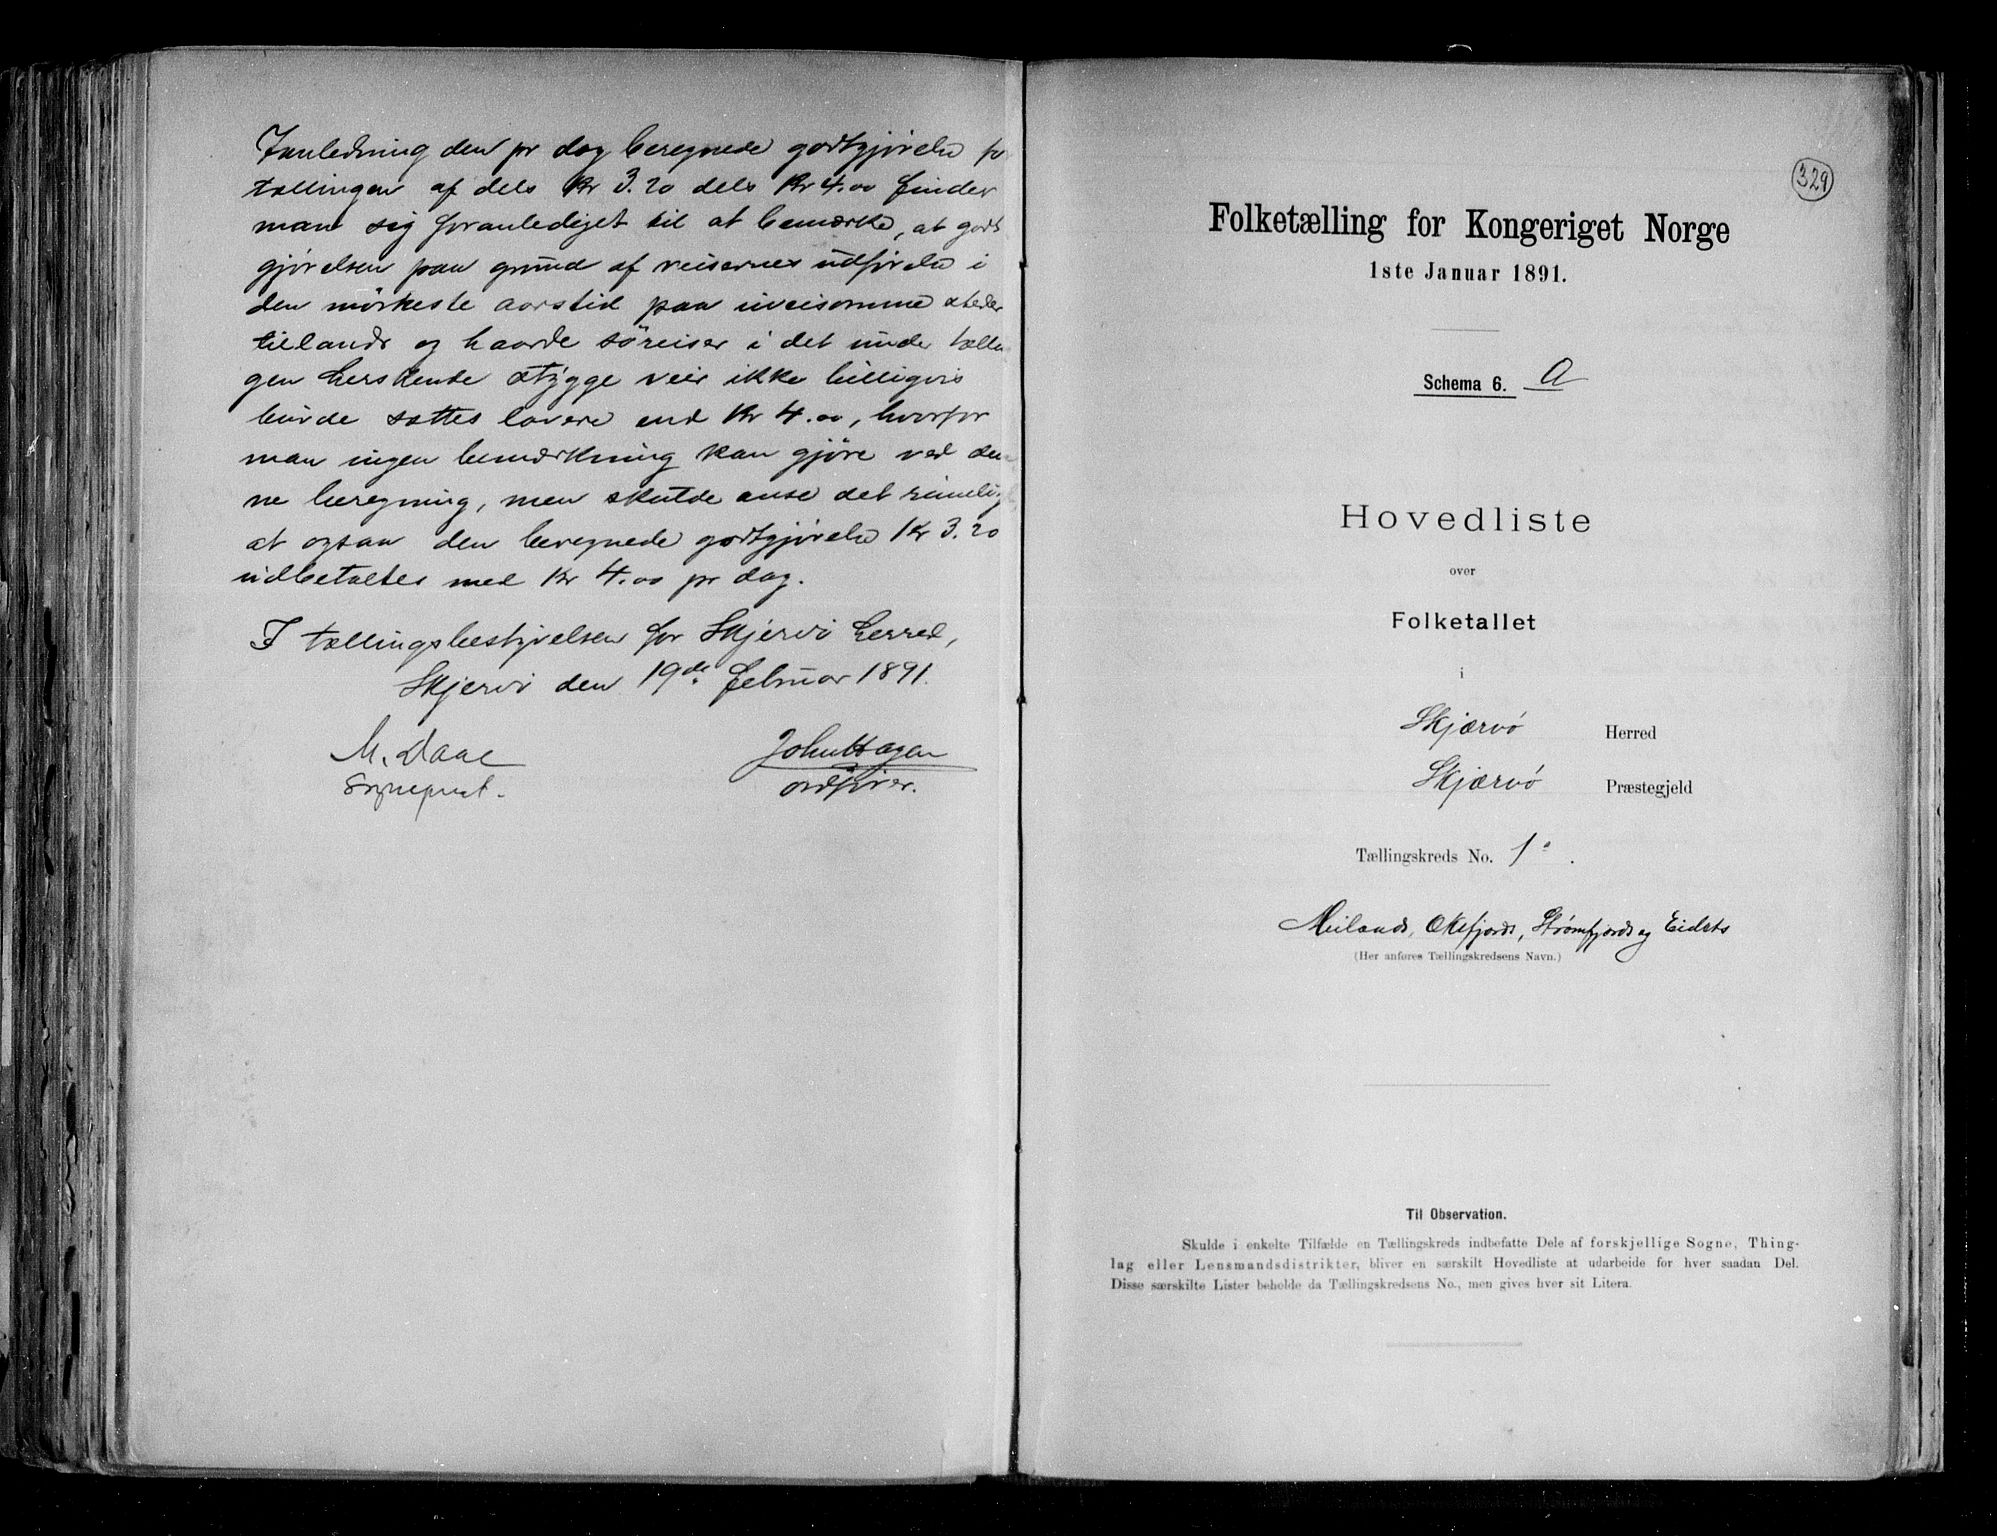 I anledning den pr dag beregnede godtgjörelse for
tællingen af dels Kr 3.20 dels Kr 4.00 finder
man sig foranlediget til at bemærke, at godt
gjörelsen paa grund af reisernes udförelse i
den mörkeste aarstid paa uveisomme steder
tillands og haarde söreiser i det under tællin
gen herskende stygge veir ikke billigvis
burde sættes lavere end Kr 4.00, hvorfor
man ingen bemærkning kan gjöre ved den
ne beregning, men skulde anse det rimeligt
at ogsaa den beregnede godtgjörelse Kr 3.20
udbetaltes med Kr 4.00 pr dag.
I tællingsbestyrelsen for Skjervö herred,
Skjervö den 19de februar 1891.
M. Daae John Hagen
Sognepræst. ordförer.
329
Folketælling for Kongeriget Norge
1ste Januar 1891.
Schema 6. A
Hovedliste
over
Folketallet
i
Skjærvø Herred
Skjærvø Præstegjeld
Tællingskreds No. 1.
Meilands, Oxfjords, Strømfjords og Eidets
(Her anføres Tællingskredsens Navn.)
Til Observation.
Skulde i enkelte Tilfælde en Tællingskreds indbefatte Dele af forskjellige Sogne, Thing-
lag eller Lensmandsdistrikter, bliver en særskilt Hovedliste at udarbeide for hver saadan Del.
Disse særskilte Lister beholde da Tællingskredsens No., men gives hver sit Litera.